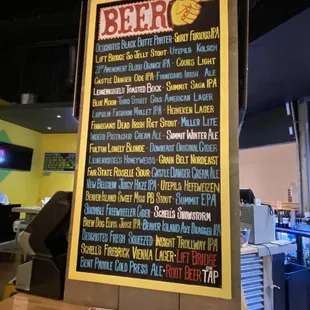 BEER
Deschutes Black Butte Porter - Surly Furious IPA
Lift Bridge So Jelly Stout - Utepils Kolsch
21st Amendment Blood Orange IPA - Coors Light
Castle Danger Ode IPA - Finnegans Irish Ale
Leinenkugels Toasted Bock - Summit Saga IPA
Blue Moon - Third Street Gold American Lager
Lupulin Fashion Mullet IPA - Heineken Lager
Finnegans Dead Irish Poet Stout - Miller Lite
Indeed Pistachio Cream Ale - Summit Winter Ale
Fulton Lonely Blonde - Downeast Original Cider
Leinenkugel's Honeyweiss - Grain Belt Nordeast
Fair State Roselle Sour - Castle Danger Cream Ale
New Belgium Juicy Haze IPA - Utepils Hefeweizen
Beaver Island Sweet Miss PB Stout - Summit EPA
Sociable Freewheeler Cider - Schell's Snowstorm
Brew Dog Elvis Juice IPA - Beaver Island Ave Dragger IPA
Deschutes Fresh Squeezed - Insight Trollway IPA
Schell's Firebrick Vienna Lager - Lift Bridge
Bent Paddle Cold Press Ale - Root Beer TAP